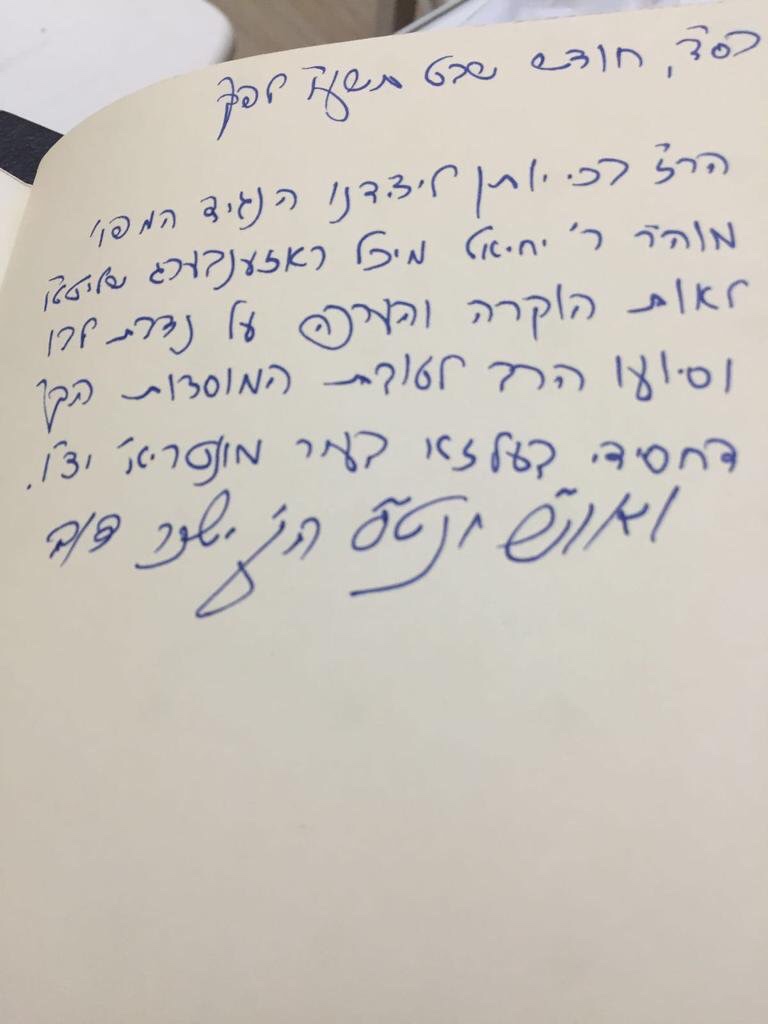 בס"ד, חודש שבט תשע"ז לפ"ק
הרצ"ב כי יותן לידידנו הנגיד המפו'
מוה"ר ר' יחיאל מיכל ראזענבערג שליט"א
לאות הוקרה והערכה על נדבת לבו
וסיועו הרב לטובת המוסדות הק'
דחסידי בעלזא בעיר מונטריאל יצ"ו.
הק' ישכר דוב